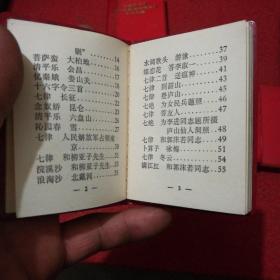 别"……14
菩萨蛮 大柏地……16
清平乐 会昌……17
忆秦娥 娄山关……18
十六字令三首……19
七律 长征……21
念奴娇 昆仑……23
清平乐 六盘山……25
沁园春 雪……27
七律 人民解放军占领南
京……30
七律 和柳亚子先生……31
浣溪沙 和柳亚子先生……33
浪淘沙 北戴河……35
— 2 —
水调歌头 游泳……37
蝶恋花 答李淑一……39
七律二首 送瘟神……41
七律 到韶山……44
七律 登庐山……46
七绝 为女民兵题照……48
七律 答友人……49
七绝 为李进同志题所摄
庐山仙人洞照……50
七律 和郭沫若同志……51
卜算子 咏梅……52
七律 冬云……54
满江红 和郭沫若同志……55
— 3 —